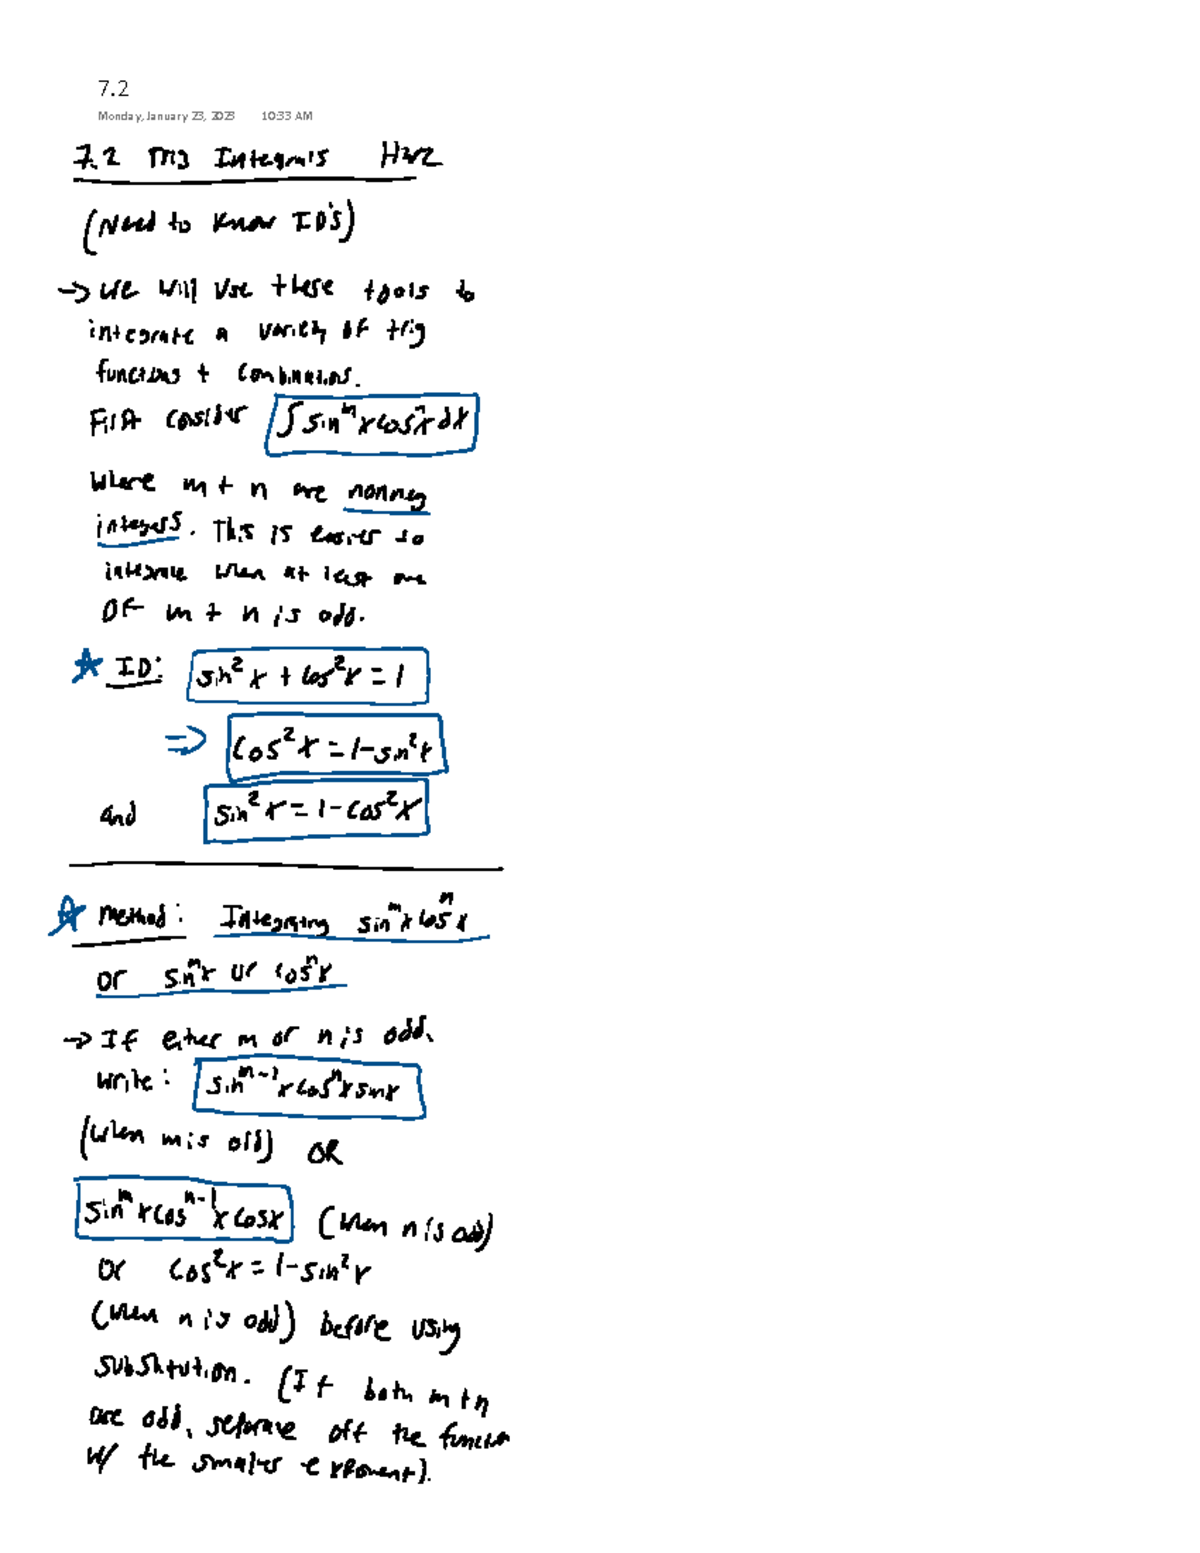 7.2
Monday, January 23, 2023 10:33 AM
7.2 Trig Integrals HW2
(Need to know ID's)
→ We will use these tools to
integrate a variety of trig
functions + combinations.
First consider ∫ sinᵐx cosⁿx dx
Where m + n are nonneg
integers. This is easier to
integrate when at least one
OF m + n is odd.
☆ ID: sin²x + cos²x = 1
⇒ cos²x = 1 - sin²x
and sin²x = 1 - cos²x
☆ Method: Integrating sinᵐx cosⁿx
or sinᵐx or cosⁿx
→ If either m or n is odd,
write: sinᵐ⁻¹x cosⁿx sinx
(when m is odd) OR
sinᵐx cosⁿ⁻¹x cosx (when n is odd)
or cos²x = 1 - sin²x
(when n is odd) before using
substitution. (If both m + n
are odd, separate off the function
w/ the smaller exponent).